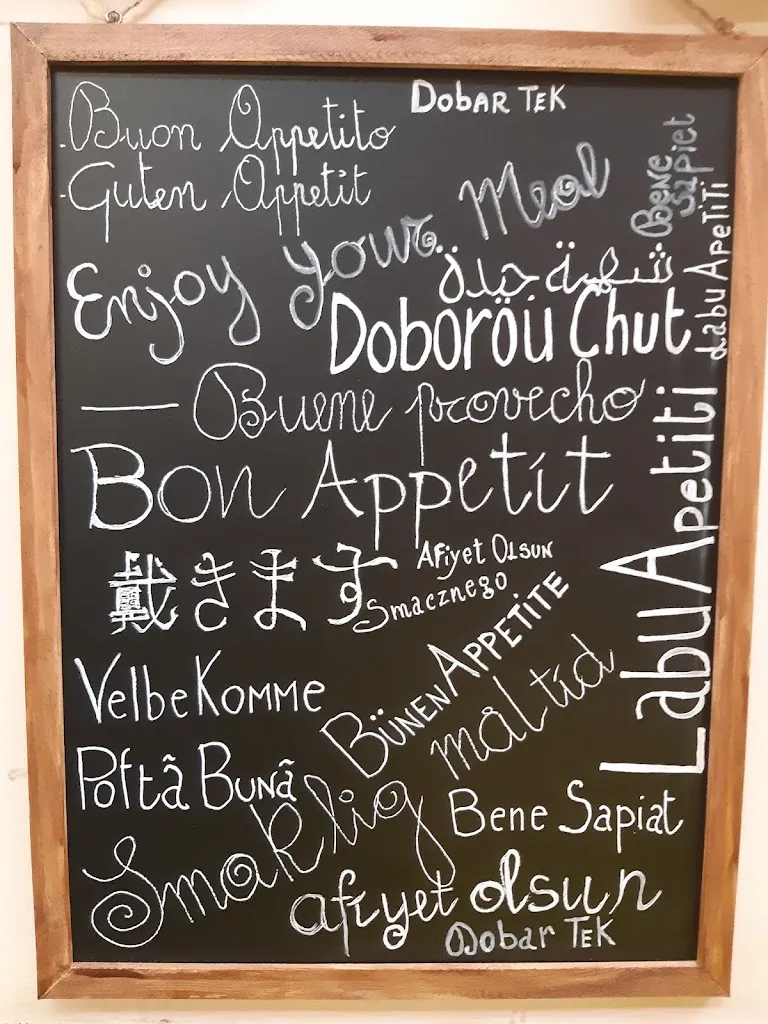 Buon Appetito
Dobar Tek
Guten Appetit
Bene Sapiet
Enjoy your Meal
شهية جيدة
Labu Apetiti
Doboröu Chut
Buene provecho
Bon Appetit
Labu Apetiti
戴きます
Afiyet Olsun
Smacznego
Bünen Appetite
VelbeKomme
Smaklig måltid
Poftã Bunã
Bene Sapiat
afiyet olsun
Dobar Tek